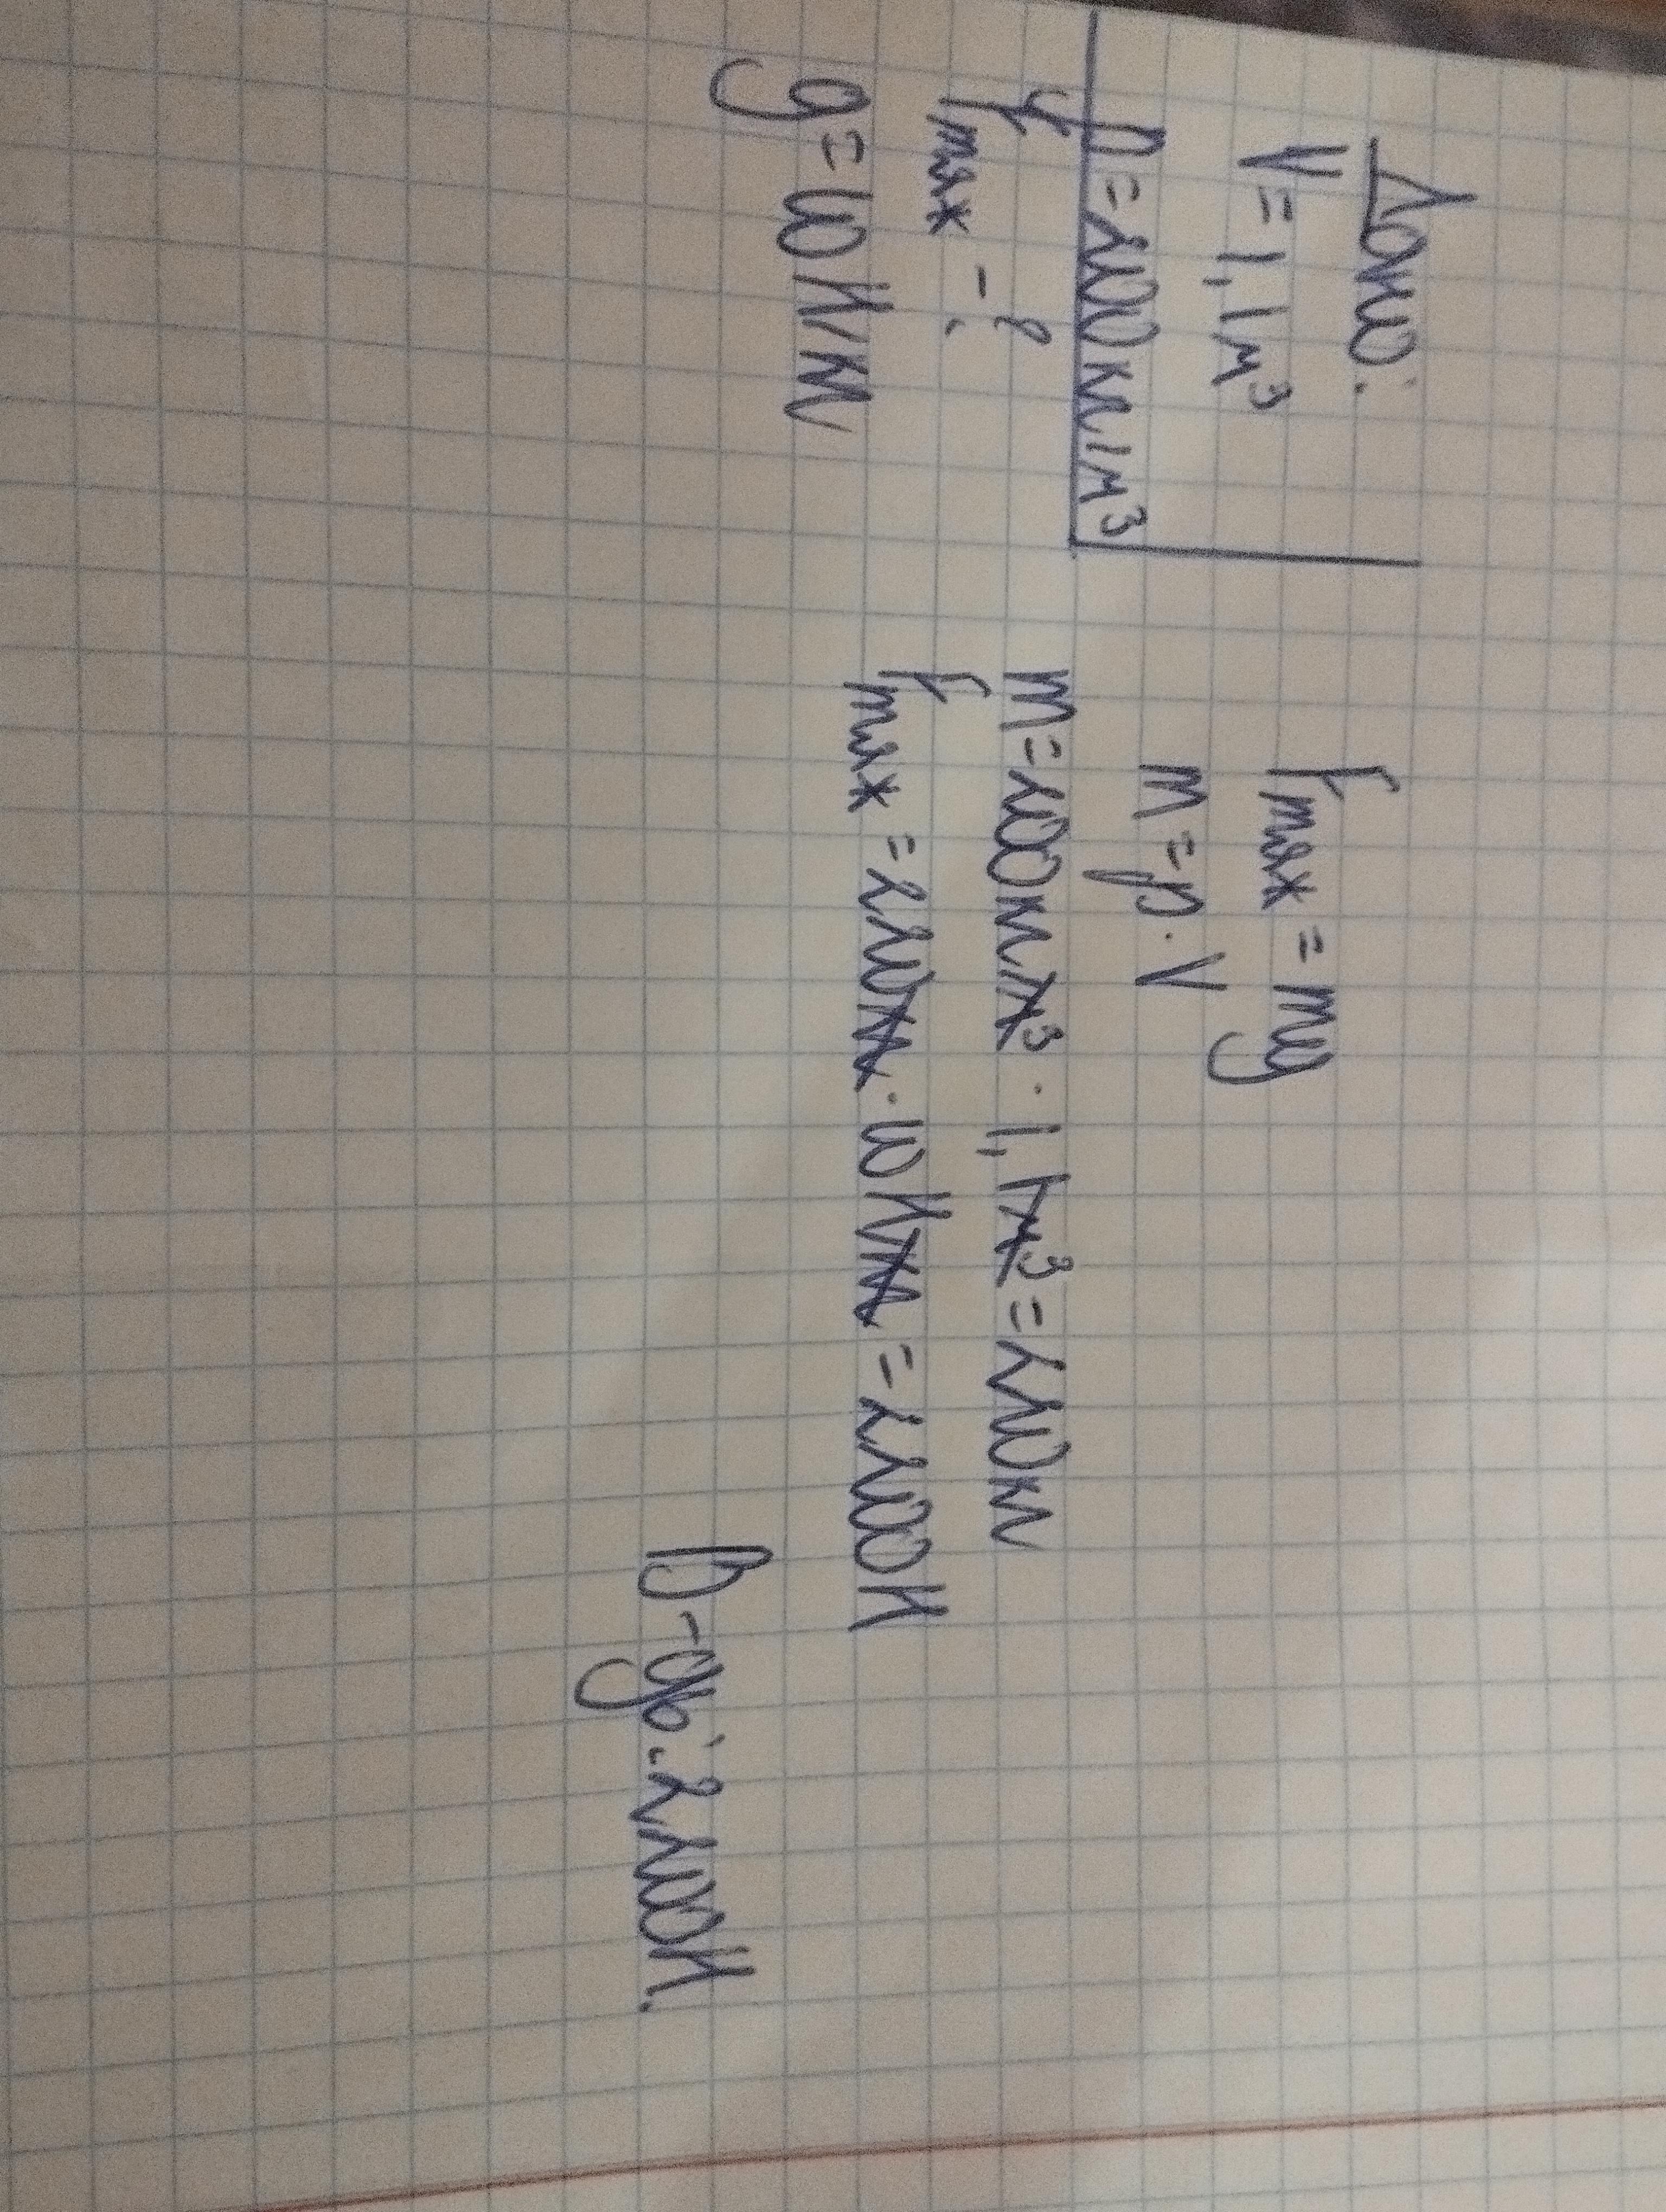 Дано:
V = 1,1 м³
ρ = 200 кг/м³
Fтяж - ?
g = 10 Н/кг
Fтяж = mg
m = ρ · V
m = 200 кг/м³ · 1,1 м³ = 220 кг
Fтяж = 220 кг · 10 Н/кг = 2200 Н
В-дь: 2200 Н.